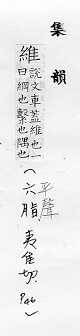 集韻
維
說文車蓋維也一
曰綱也繫也隅也
平聲
（六脂 夷隹切）